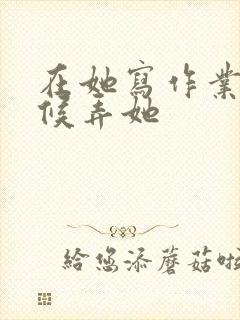 在她寫作業
候弄她
給您添蘑菇啦